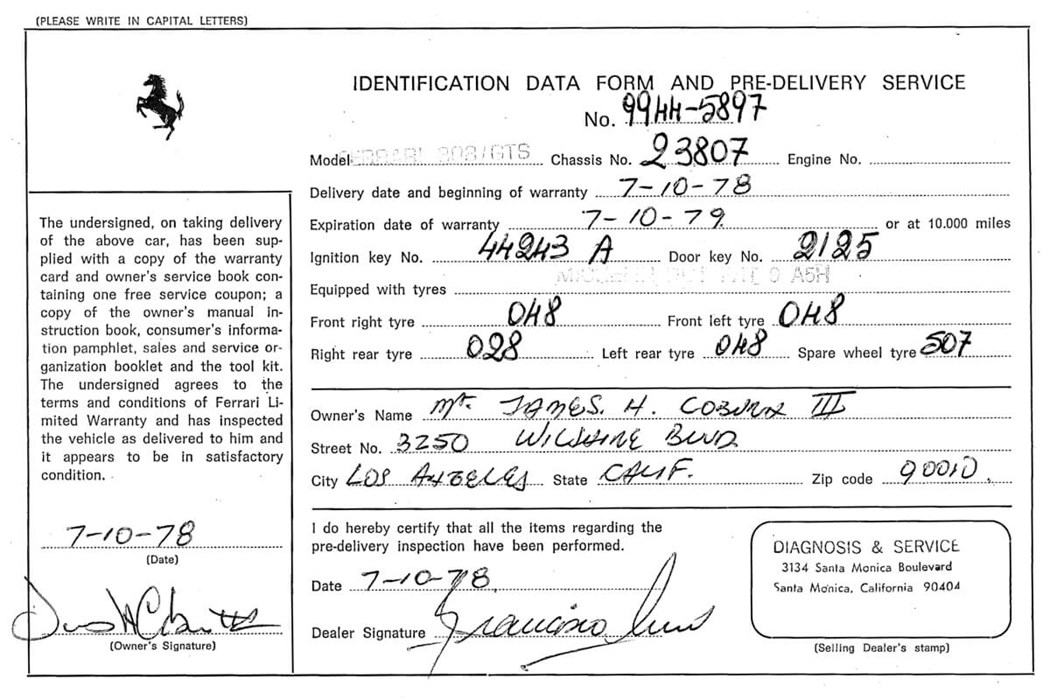 (PLEASE WRITE IN CAPITAL LETTERS)
IDENTIFICATION DATA FORM AND PRE-DELIVERY SERVICE
No. 99HH-5897
Model FERRARI 308/GTS Chassis No. 23807 Engine No.
Delivery date and beginning of warranty 7-10-78
Expiration date of warranty 7-10-79. or at 10.000 miles
Ignition key No. 44243 A Door key No. 2125
Equipped with tyres
Front right tyre 048 Front left tyre 048
Right rear tyre 028 Left rear tyre 048 Spare wheel tyre 507
Owner's Name Mr. JAMES. H. COBURN III
Street No. 3250 WILSHIRE BLVD.
City LOS ANGELES State CALIF. Zip code 90010.
The undersigned, on taking delivery
of the above car, has been sup-
plied with a copy of the warranty
card and owner's service book con-
taining one free service coupon; a
copy of the owner's manual in-
struction book, consumer's informa-
tion pamphlet, sales and service or-
ganization booklet and the tool kit.
The undersigned agrees to the
terms and conditions of Ferrari Li-
mited Warranty and has inspected
the vehicle as delivered to him and
it appears to be in satisfactory
condition.
7-10-78
(Date)
(Owner's Signature)
I do hereby certify that all the items regarding the
pre-delivery inspection have been performed.
Date 7-10-78
Dealer Signature Francisco
DIAGNOSIS & SERVICE
3134 Santa Monica Boulevard
Santa Monica, California 90404
(Selling Dealer's stamp)